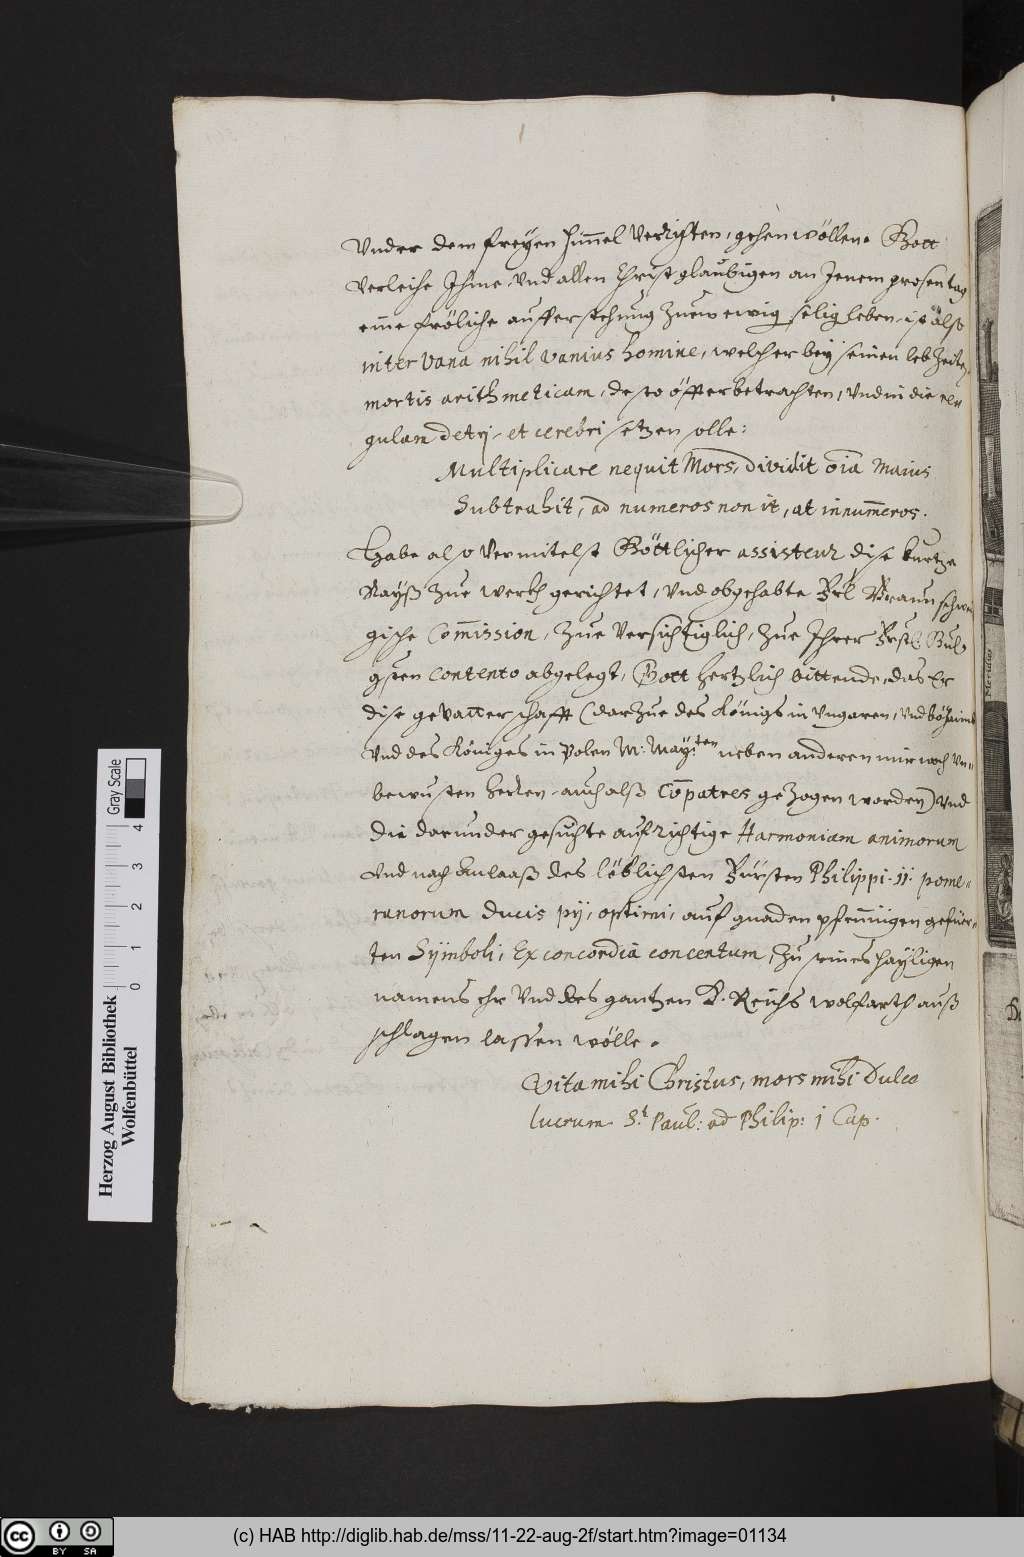 Vnder dem freyen himel Verrichten, gehen wöllen. Gott
Verleihe Ihme, Vnd allen Christglaubigen an Jenem grosen tag
eine fröliche aufferstehung Zuem ewig selig leben, ist also
inter Vana nihil vanius homine, welcher bey seinen lebZeiten
mortis arithmeticam, desto öffter betrachten, Vnd in die re=
gulam detrj, et cerebri setzen solle:
Multiplicare nequit Mors, dividit oīa Maius
Subtrahit, ad numeros non it, at innum̄eros.
Habe also Vermitelst Göttlicher assistenz dise kurtze
Rayß Zue werkh gerichtet, Vnd obgehabte Frl Braunschwei
gische Com̄ission, Zue Versichtiglich, Zue Ihrer Frstl. Gnl.
gsten contento abgelegt, Gott hertzlich bittende, das Er
dise gevatterschafft (darZue des Königs in Vngaren, Vnd böhaimb
Vnd des Königes in Polen M: May:ten neben anderen mir noch Vn=
bewusten herren, auch alß Cōpatres geZogen worden) Vnd
die darunder gesuchte aufrichtige Harmoniam animorum
Vnd nach Anlaaß des löblichsten Fürsten Philippi .II. pome=
ranorum Ducis pij, optimi, auf gnaden pfennigen gefüer=
ten Sÿmboli, Ex concordia concentum, Zu seines hayligen
namens ehr Vnd des gantzen R. Reichs wolfarth auß
schlagen lassen wölle.
Vita mihi Christus, mors mihi dulce
lucrum. St Paul: ad Philip: 1 Cap.
Meridies
Gray Scale
0 1 2 3 4
Herzog August Bibliothek
Wolfenbüttel
cc BY SA
(c) HAB http://diglib.hab.de/mss/11-22-aug-2f/start.htm?image=01134